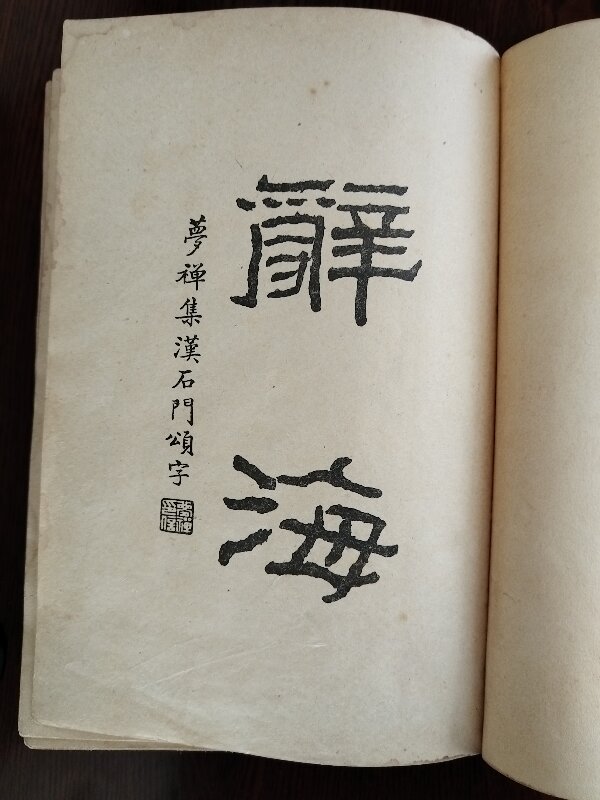 辭海
夢禅集漢石門頌字